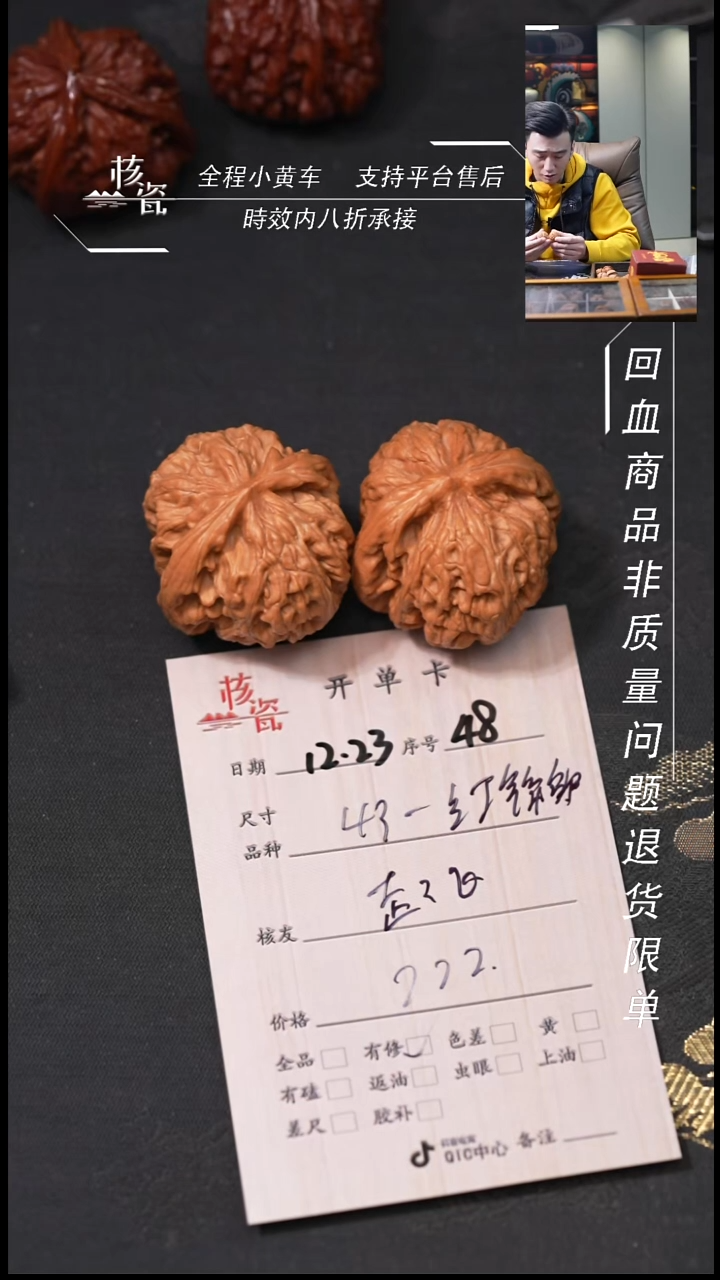 核瓷
全程小黄车 支持平台售后
時效内八折承接
回血商品非质量问题退货限单
核瓷
开单卡
日期 12.23 序号 48
尺寸
品种 43-红锦卿
核友
价格 772.
全品 有修 色差 黄
有磕 返油 虫眼 上油
差尺 胶补
QIC中心 备注